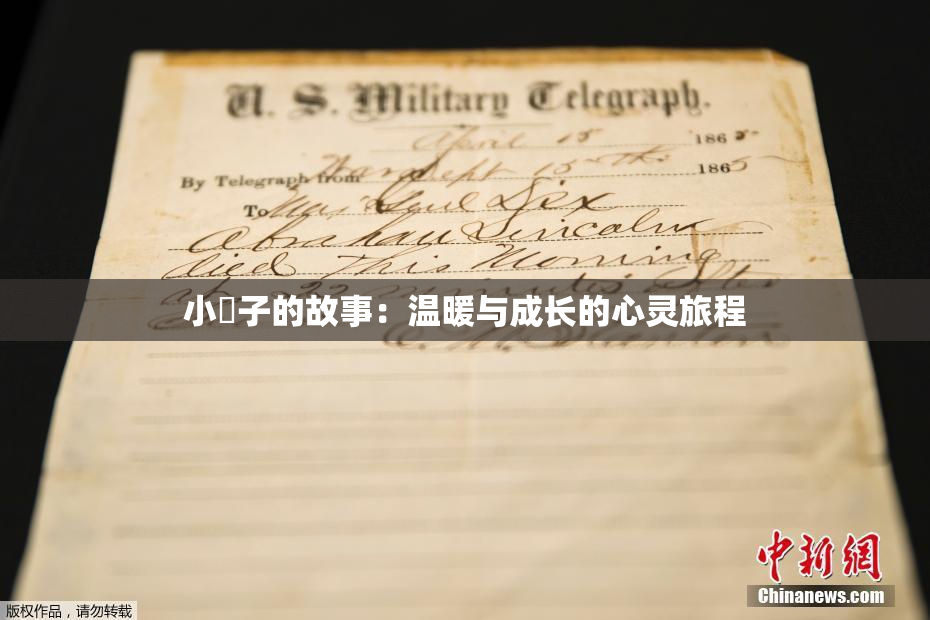 U. S. Military Telegraph.
April 15 1865
By Telegraph from War Dept 15th 1865
To Maj Genl Dix
Abraham Lincoln
died This Morning
at 22 minutes after
小子的故事：温暖与成长的心灵旅程
E. M. Stanton
中新網
Chinanews.com
版权作品，请勿转载